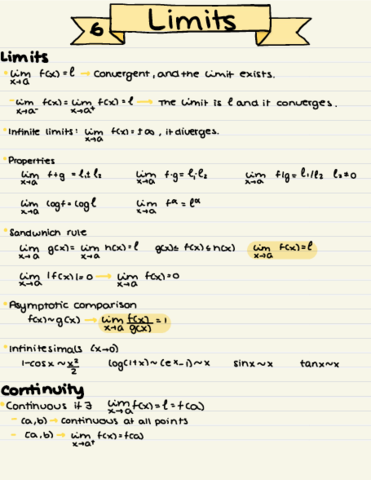 6 Limits
Limits
lim x→a f(x) = l → Convergent, and the limit exists.
- lim x→a⁻ f(x) = lim x→a⁺ f(x) = l → The limit is l and it converges.
Infinite limits: lim x→a f(x) = ±∞, it diverges.
Properties
lim x→a f±g = l₁±l₂ lim x→a f·g = l₁·l₂ lim x→a f/g = l₁/l₂ l₂≠0
lim x→a logf = logl lim x→a fᵅ = lᵅ
Sandwich rule
lim x→a g(x) = lim x→a h(x) = l g(x) ≤ f(x) ≤ h(x) lim x→a f(x) = l
lim x→a |f(x)| = 0 → lim x→a f(x) = 0
Asymptotic comparison
f(x) ~ g(x) → lim x→a f(x)/g(x) = 1
Infinitesimals (x→0)
1-cosx ~ x²/2 log(1+x) ~ (eˣ-1) ~ x sinx ~ x tanx ~ x
Continuity
Continuous if ∃ lim x→a f(x) = l = f(a)
- (a,b) → continuous at all points
- [a,b) → lim x→a⁺ f(x) = f(a)